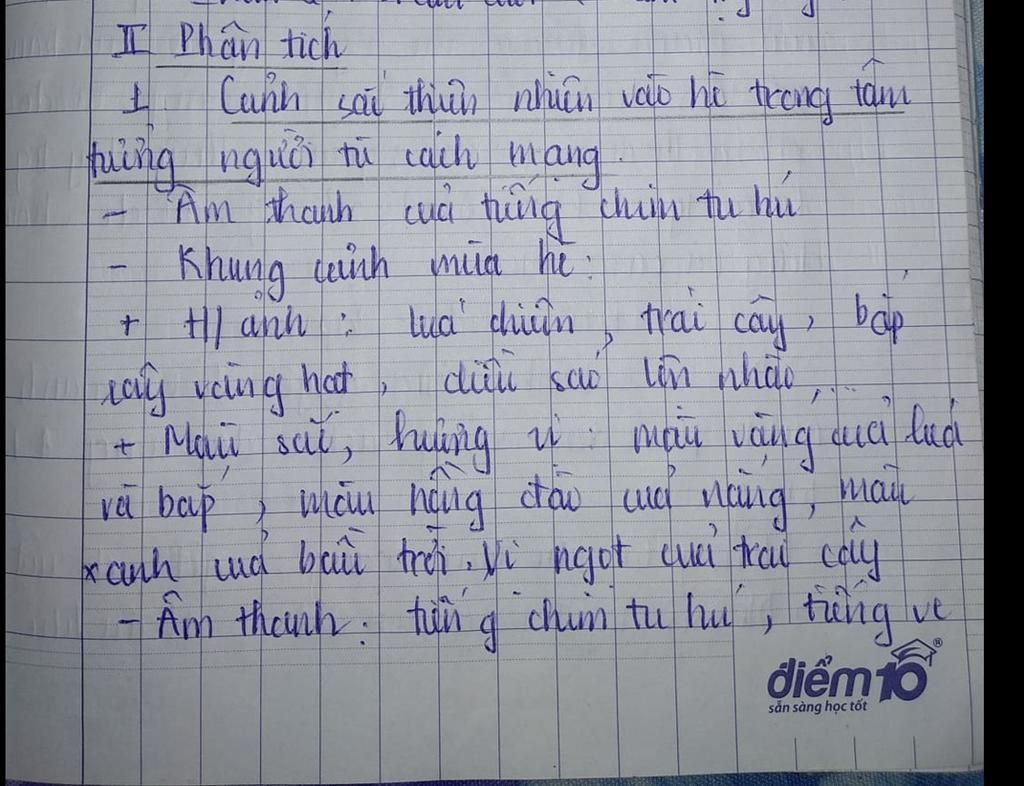 II Phân tích
1 Cảnh sắc thiên nhiên vào hè trong tâm
tưởng người tù cách mạng.
- Âm thanh của tiếng chim tu hú
- Khung cảnh mùa hè:
+ H/ảnh: lúa chiêm, trái cây, bắp
rây vàng hạt, diều sáo lộn nhào,...
+ Màu sắc, hương vị: màu vàng của lúa
và bắp, màu hồng đào của nắng, màu
xanh của bầu trời. Vị ngọt của trái cây
- Âm thanh: tiếng chim tu hú, tiếng ve
điểm 10 ®
sẵn sàng học tốt